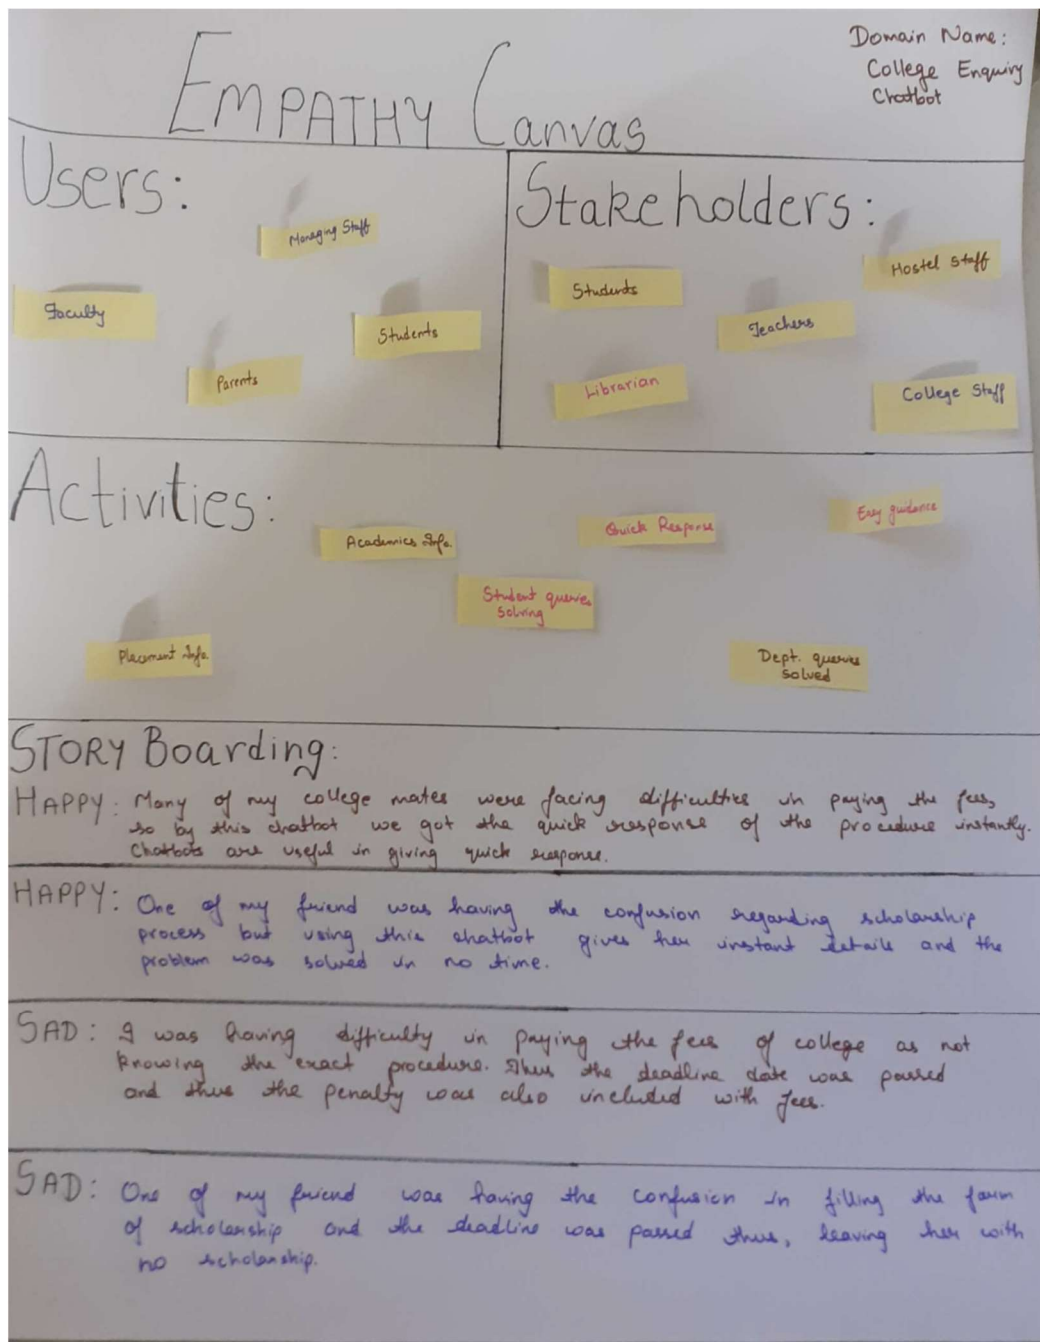 EMPATHY Canvas
Domain Name:
College Enquiry
Chatbot
Users:
Managing Staff
Faculty
Students
Parents
Stakeholders:
Hostel Staff
Students
Teachers
Librarian
College Staff
Activities:
Easy guidance
Quick Response
Academics Info.
Student queries
solving
Placement Info.
Dept. queries
solved
STORY Boarding:
HAPPY: Many of my college mates were facing difficulties in paying the fees,
so by this chatbot we got the quick response of the procedure instantly.
Chatbots are useful in giving quick response.
HAPPY: One of my friend was having the confusion regarding scholarship
process but using this chatbot gives her instant details and the
problem was solved in no time.
SAD: I was having difficulty in paying the fees of college as not
knowing the exact procedure. Thus the deadline date was passed
and thus the penalty was also included with fees.
SAD: One of my friend was having the confusion in filling the form
of scholarship and the deadline was passed thus, leaving her with
no scholarship.